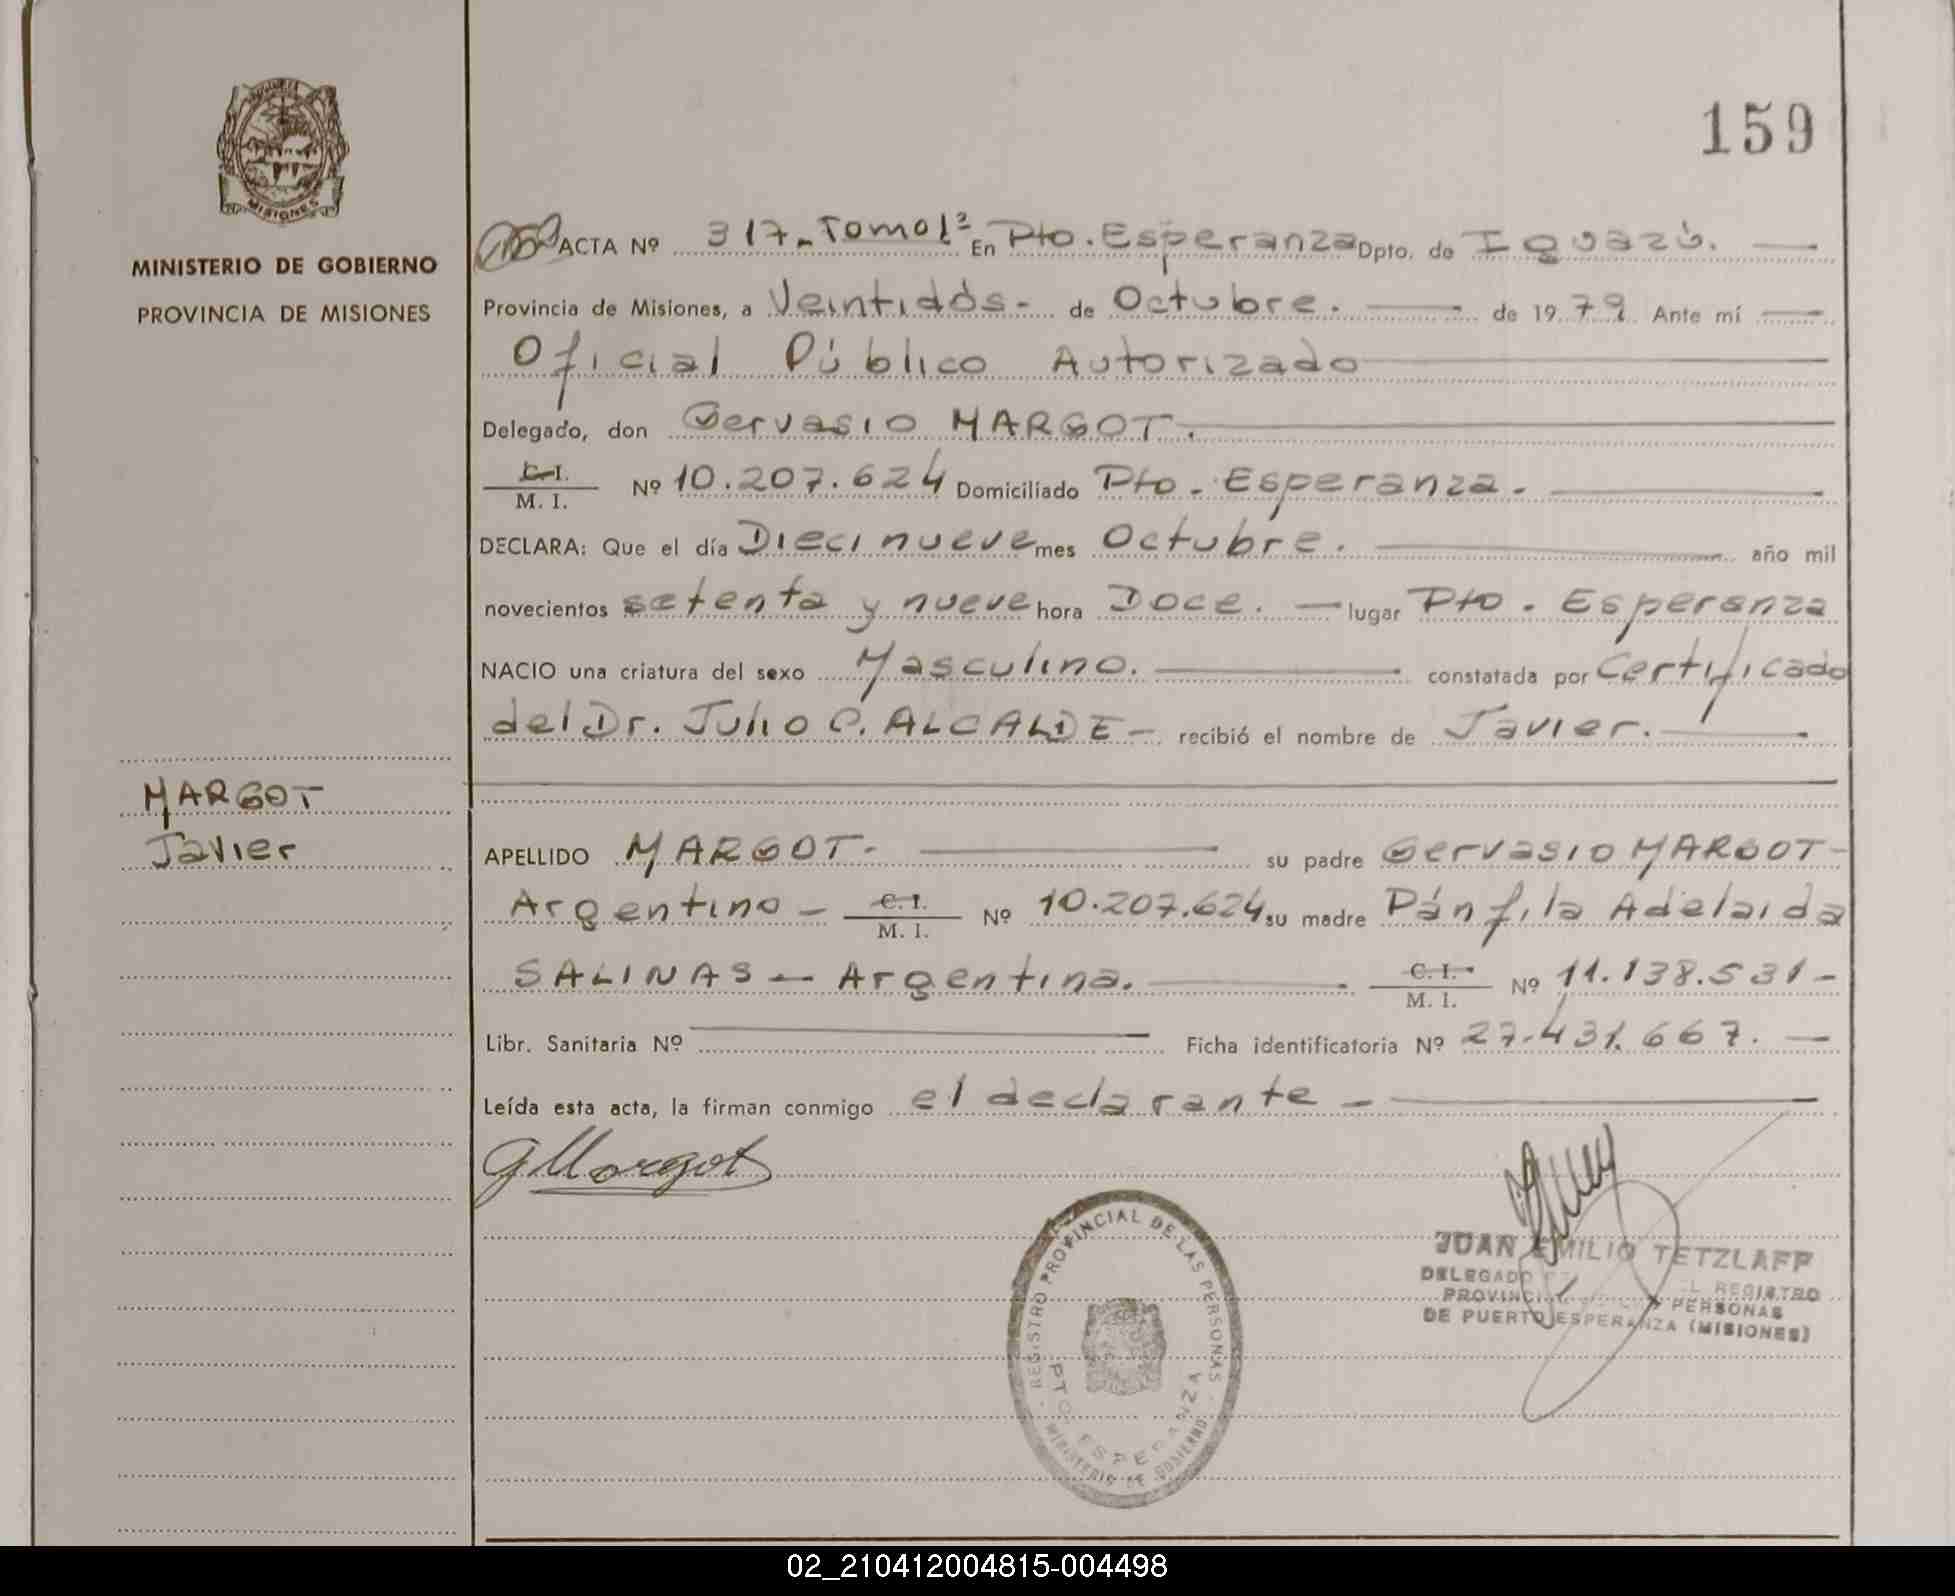 159
MISIONES
MINISTERIO DE GOBIERNO
PROVINCIA DE MISIONES
MARGOT
Javier
ACTA Nº 317.- Tomo 1º En Pto. Esperanza Dpto. de Iguazú. —
Provincia de Misiones, a Veintidós.- de Octubre. — de 1979 Ante mí —
Oficial Público Autorizado —
Delegado, don Gervasio MARGOT. —
C. I. / M. I. Nº 10.207.624 Domiciliado Pto. Esperanza. —
DECLARA: Que el día Diecinueve mes Octubre. — año mil
novecientos setenta y nueve hora Doce. — lugar Pto. Esperanza
NACIO una criatura del sexo Masculino. — constatada por Certificado
del Dr. Julio C. ALCALDE — recibió el nombre de Javier. —
APELLIDO MARGOT. — su padre Gervasio MARGOT —
Argentino — C. I. / M. I. Nº 10.207.624 su madre Pánfila Adelaida
SALINAS — Argentina. — C. I. / M. I. Nº 11.138.531 —
Libr. Sanitaria Nº — Ficha identificatoria Nº 27.431.667. —
Leída esta acta, la firman conmigo el declarante — —
GMargot
REGISTRO PROVINCIAL DE LAS PERSONAS
PTO. ESPERANZA
MINISTERIO DE GOBIERNO
JUAN EMILIO TETZLAFF
DELEGADO DEL REGISTRO
PROVINCIAL PERSONAS
DE PUERTO ESPERANZA (MISIONES)
02_210412004815-004498